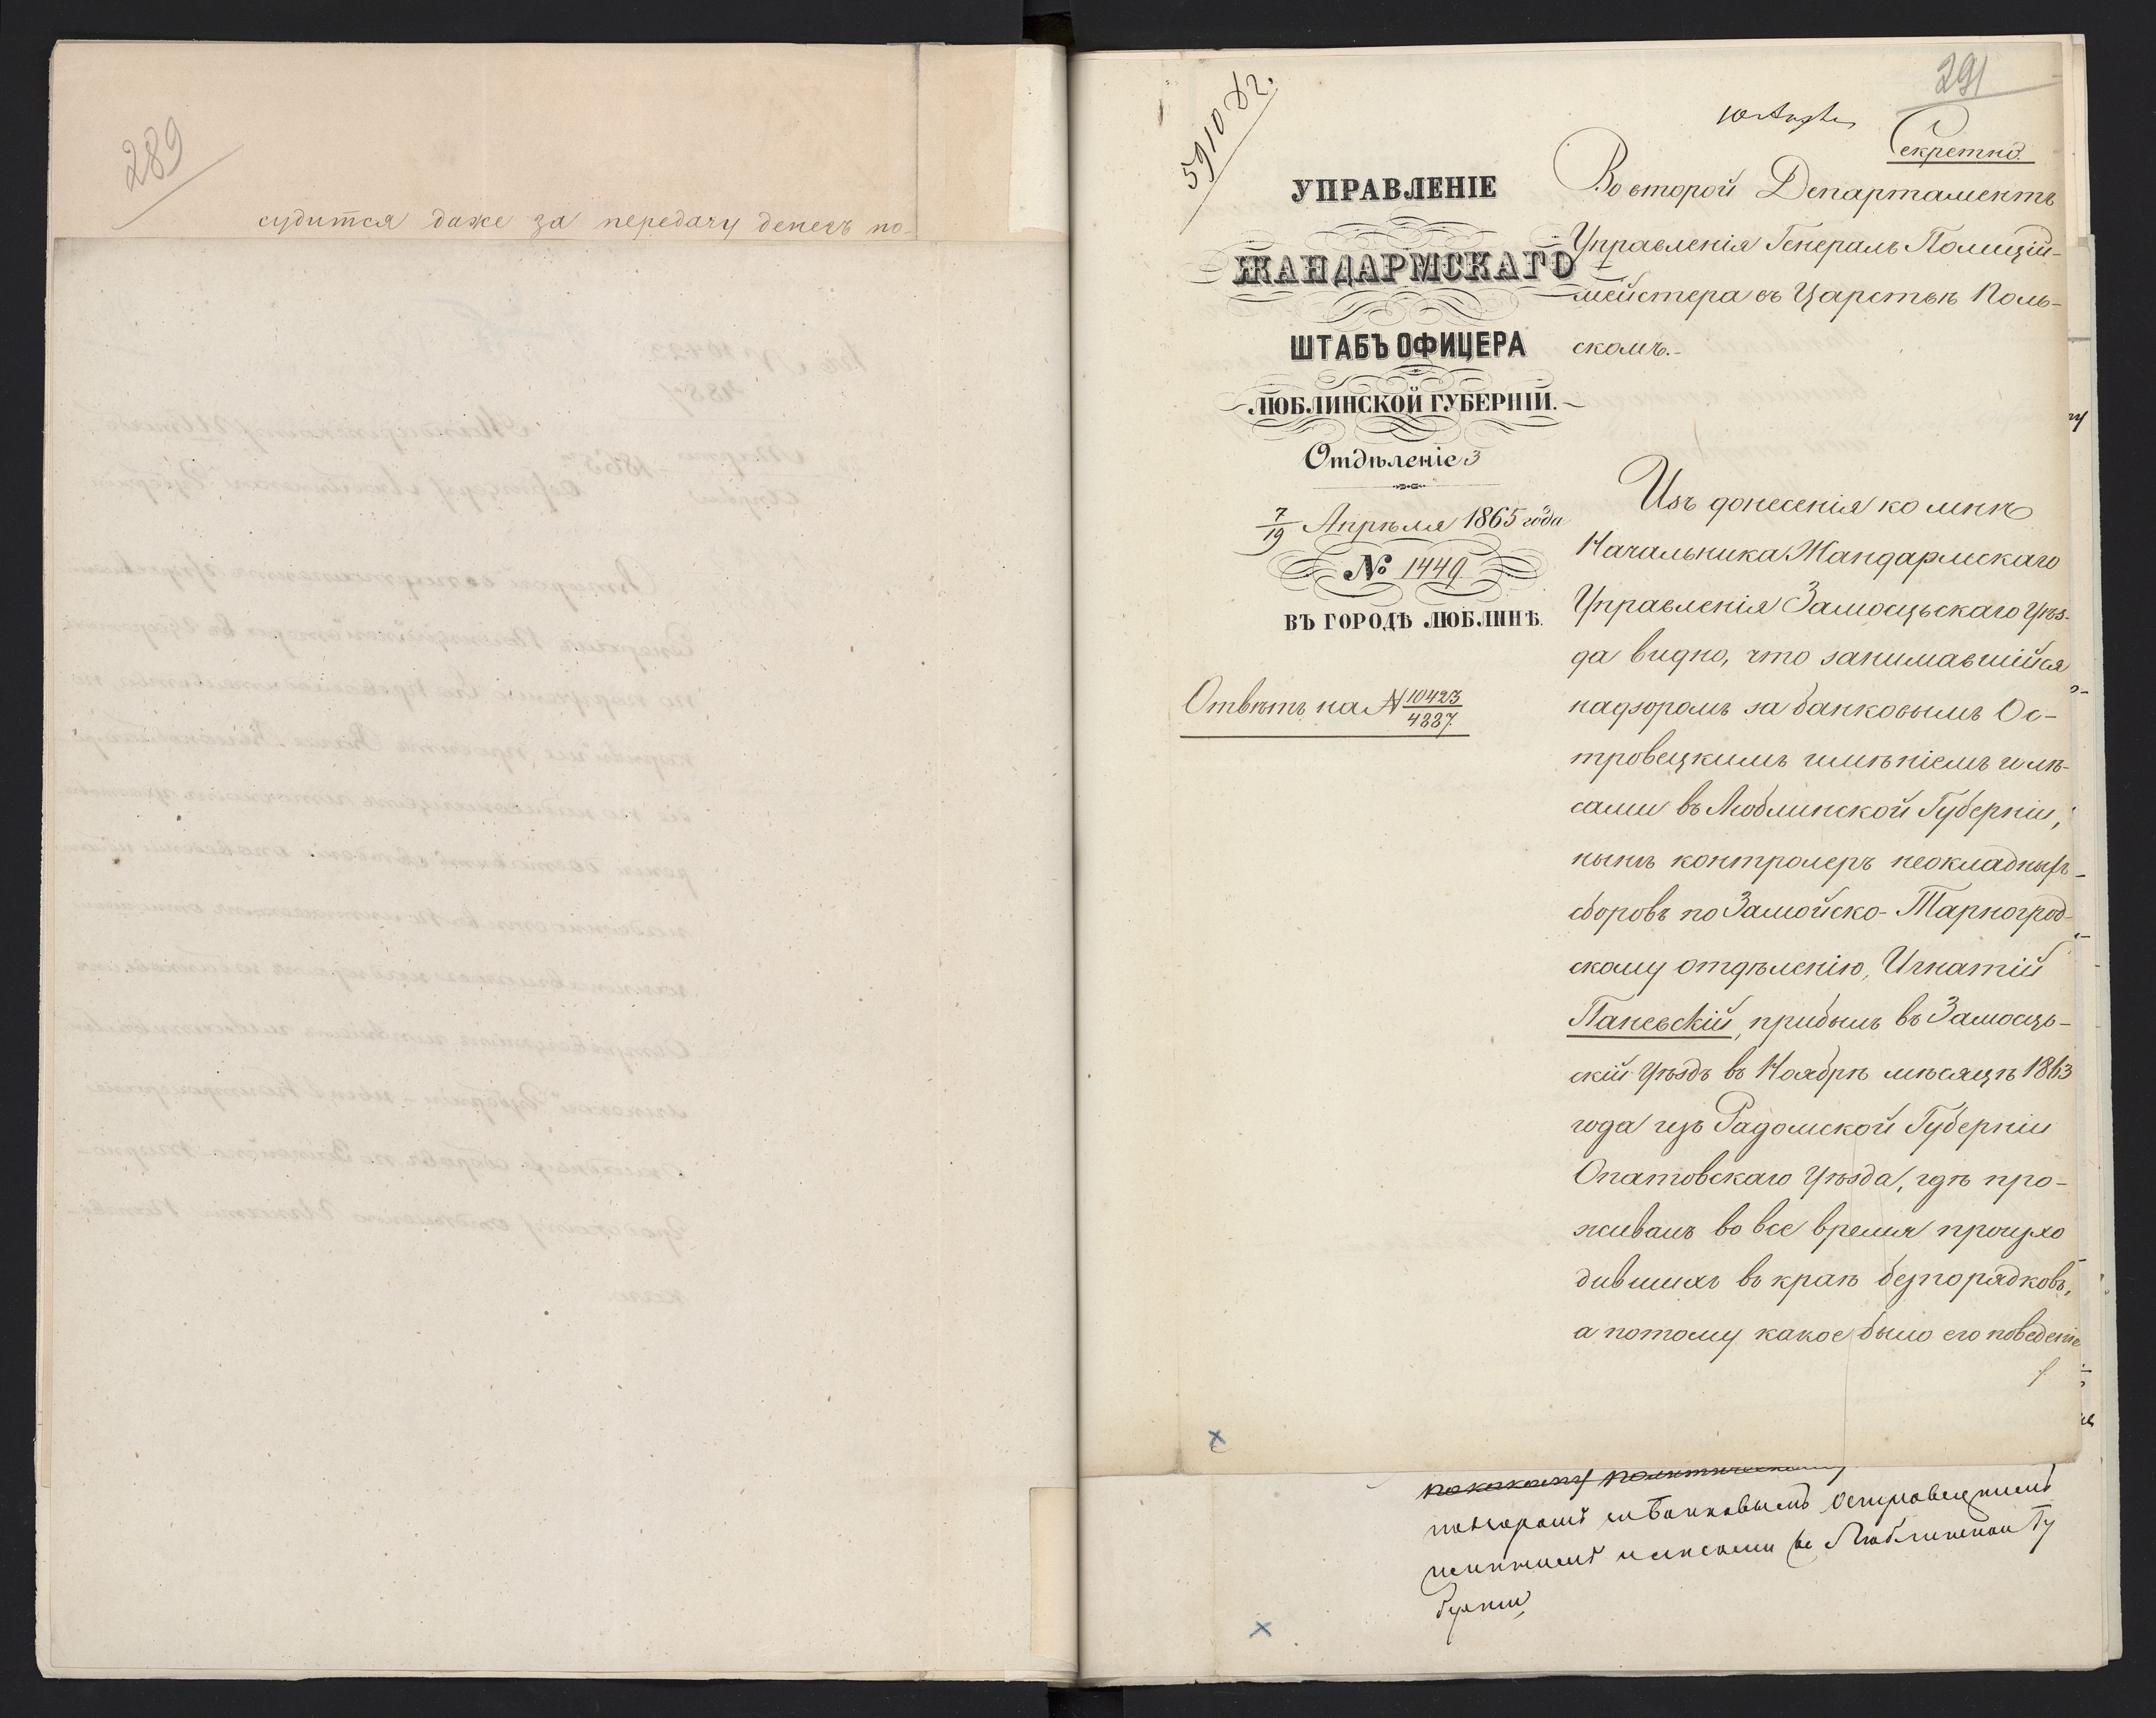 289
судится даже за передачу денегъ по-
291
5910 82.
10 Апрѣля
Секретно.
УПРАВЛЕНІЕ
ЖАНДАРМСКАГО
ШТАБЪ ОФИЦЕРА
ЛЮБЛИНСКОЙ ГУБЕРНІИ.
Отдѣленіе 3
7/19 Апрѣля 1865 года
№ 1449
ВЪ ГОРОДѢ ЛЮБЛИНѢ.
Отвѣтъ на № 10423/4887.
Во второй Департаментъ
Управленія Генералъ Полицій-
мейстера въ Царствѣ Поль-
скомъ.-
Изъ донесенія ко мнѣ
Начальника Жандармскаго
Управленія Замосцьскаго Уѣз-
да видно, что занимавшійся
надзоромъ за банковымъ Ос-
тровецкимъ имѣніемъ и лѣ-
сами въ Люблинской Губерніи,
нынѣ контролеръ неокладныхъ
сборовъ по Замойско-Тарногрод-
скому отдѣленію, Игнатій
Паневскій, прибылъ въ Замосць-
скій Уѣздъ въ Ноябрѣ мѣсяцѣ 1863
года изъ Радомской Губерніи
Опатовскаго Уѣзда, гдѣ про-
живалъ во все время происхо
дившихъ въ краѣ безпорядковъ,
а потому какое было его поведеніе
надзоромъ за Банковымъ Островецкимъ
имѣніемъ и лѣсами въ Люблинской Гу
берніи